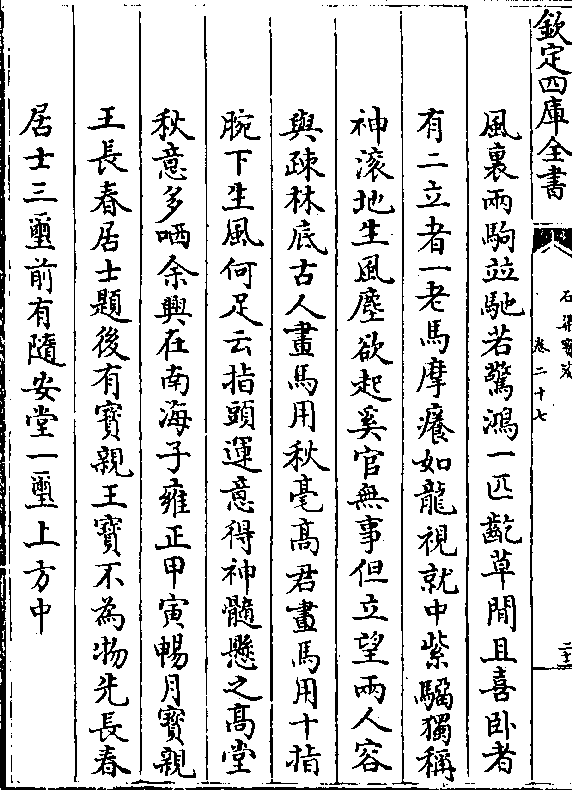 欽定四庫全書
石渠寶笈
卷二十七
風裏兩駒竝馳若驚鴻一匹齕草閒且喜卧者
有二立者一老馬摩癢如龍視就中紫騮獨稱
神滚地生風塵欲起奚官無事但立望兩人容
與疎林底古人畫馬用秋毫高君畫馬用十指
腕下生風何足云指頭運意得神髓懸之高堂
秋意多哂余興在南海子雍正甲寅暢月寳親
王長春居士題後有寳親王寳不為物先長春
居士三璽前有隨安堂一璽上方中